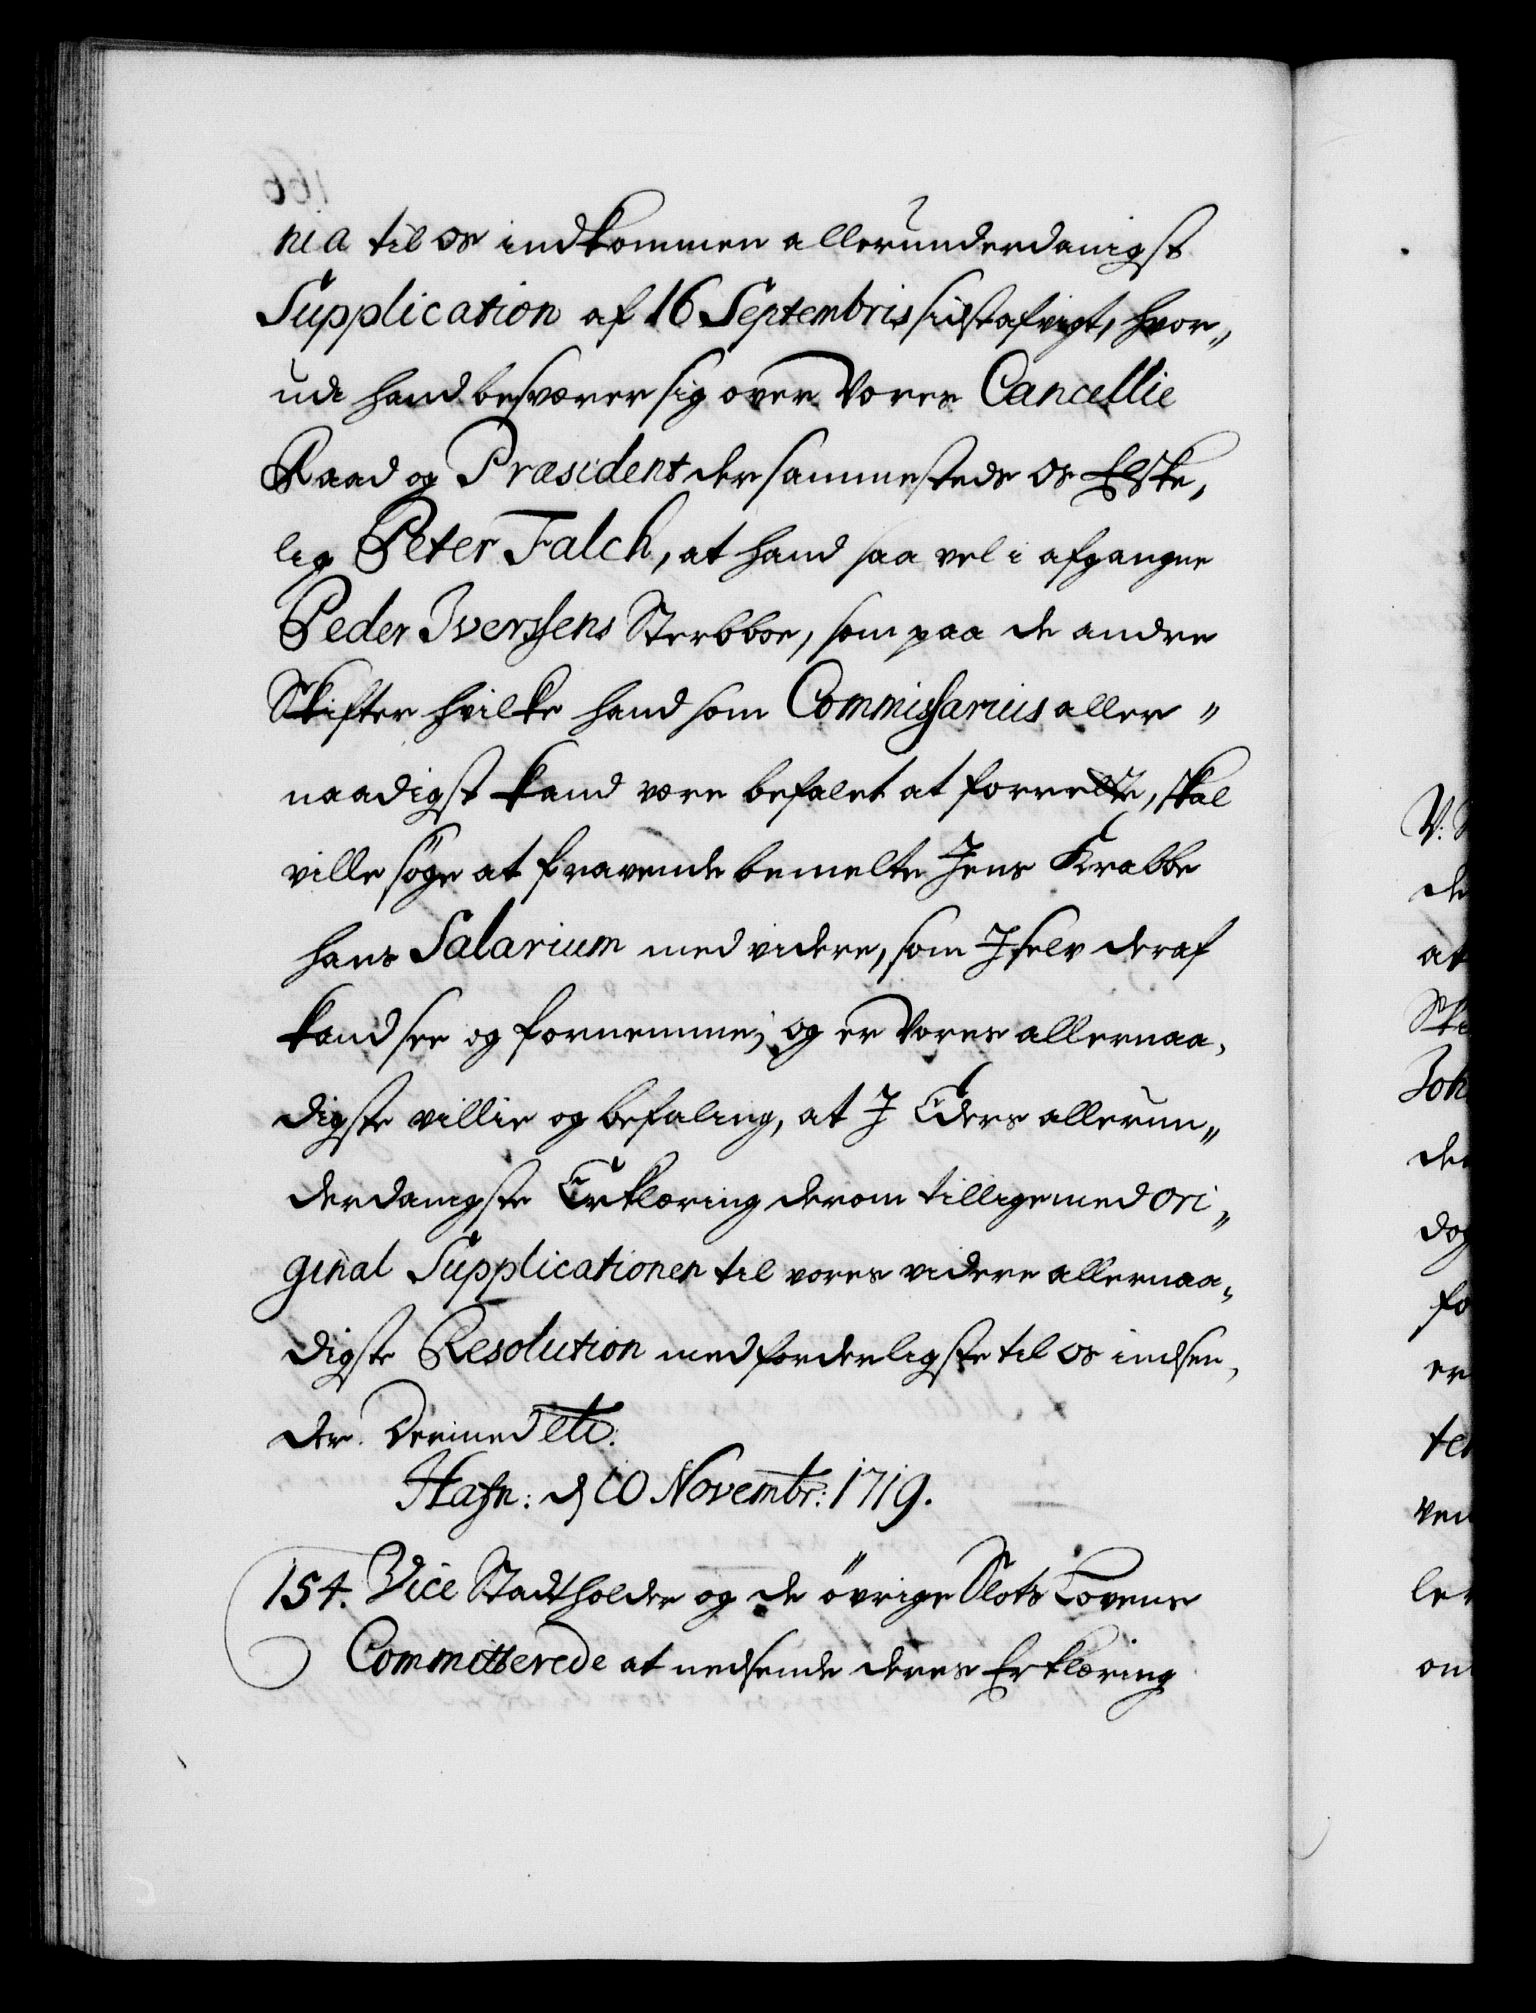 nia til os indkommen allerunderdanigst
Supplication af 16 Septembris sidstafvigt, hvor„
udi hand besværer sig over Vores Cancellie
Raad og Præsident dersammesteds os Elske„
lig Peter Falch, at hand saa vel i afgangne
Peder Iverssens Sterbboe, som paa de andre
Skifter hvilke hand som Commissarius aller„
naadigst kand være befalet at forrette, skal
ville söge at fravende bemelte Jens Krabbe
hans Salarium med videre, som I selv deraf
kand see og fornemme; og er Vores allernaa„
digste villie og befaling, at I Eders allerun„
derdanigste Erklæring derom tilligemed ori„
ginal Supplicationen til vores videre allernaa„
digste Resolution med forderligste til os indsen„
der. Dermed etc:
Hafn: d 10 Novembr: 1719.
154. Vice Stadtholder og de övrige Slots Lovens
Committerede at nedsende deres Erklæring
V: S
de
at
Ski
Joh
der
dog
fo
er
ten
ven
ler
om